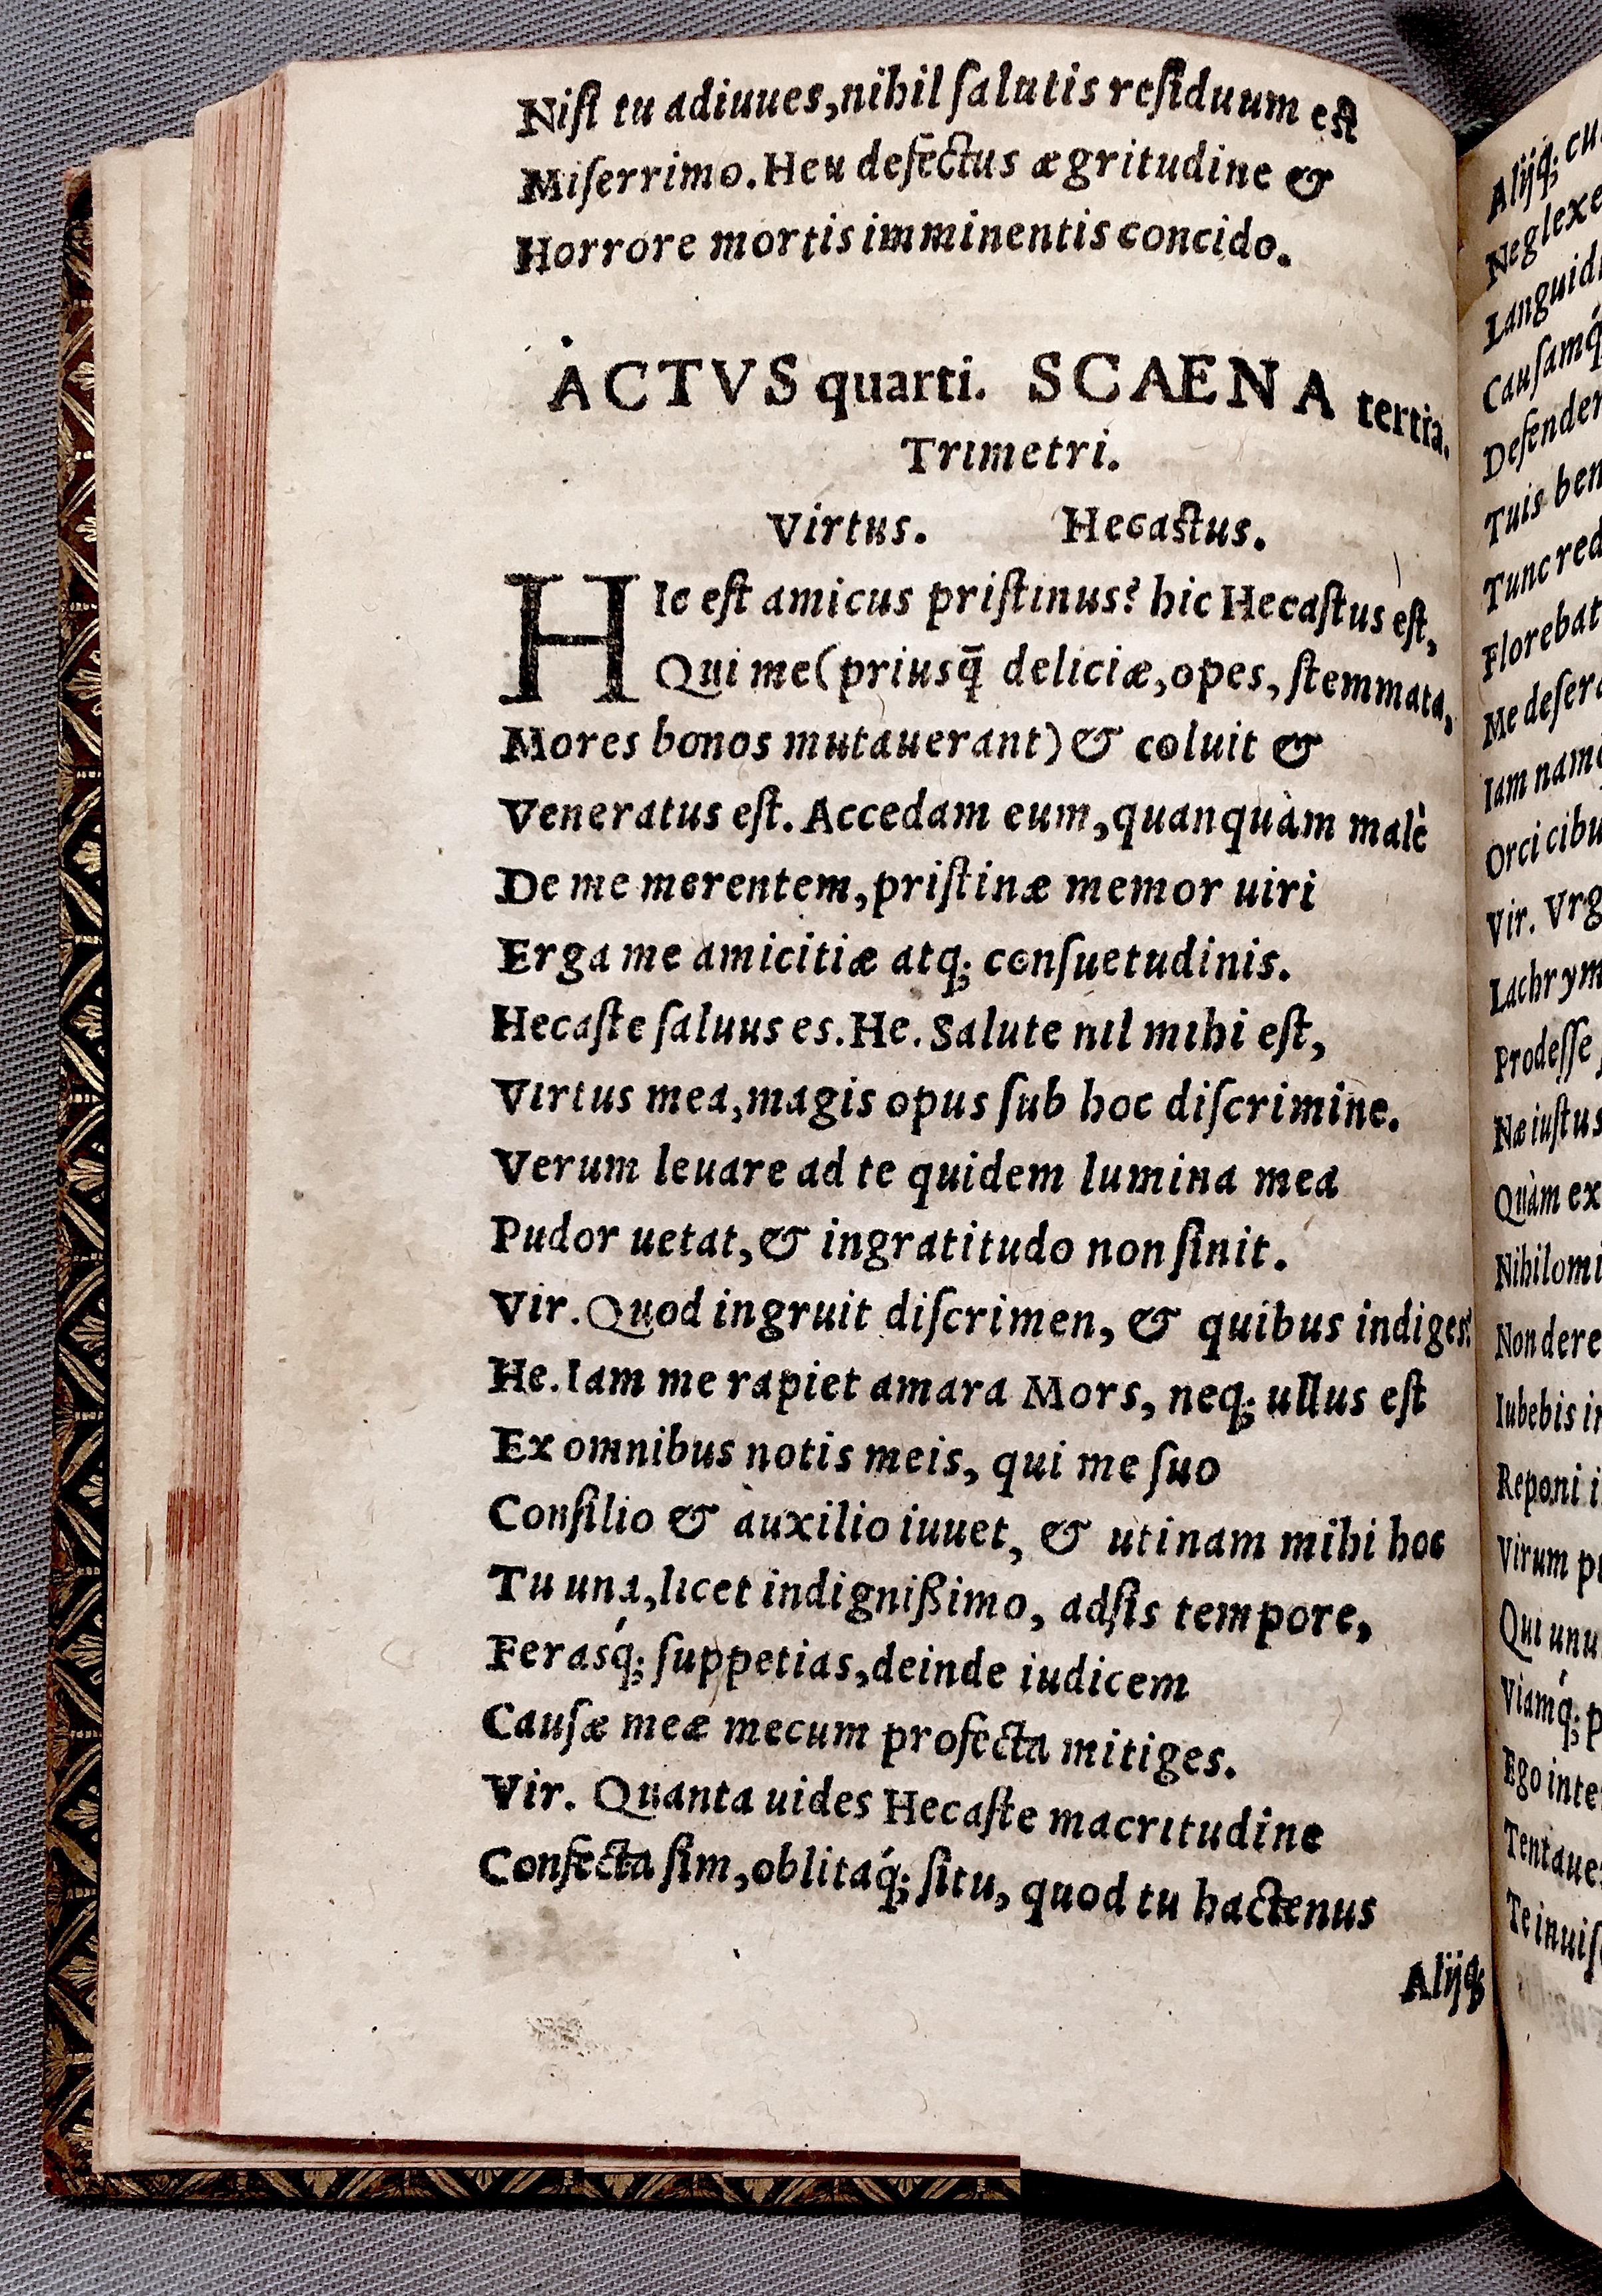 Niſi tu adiuues, nihil ſalutis reſiduum eſt
Miſerrimo. Heu defectus ægritudine &
Horrore mortis imminentis concido.
ACTVS quarti. SCAENA tertia.
Trimetri.
Virtus. Hecaſtus.
HIc eſt amicus priſtinus? hic Hecaſtus eſt,
Qui me (priusq̄ deliciæ, opes, ſtemmata,
Mores bonos mutauerant) & coluit &
Veneratus eſt. Accedam eum, quanquàm malè
De me merentem, priſtinæ memor uiri
Erga me amicitiæ atq; conſuetudinis.
Hecaſte ſaluus es. He. Salute nil mihi eſt,
Virtus mea, magis opus ſub hoc diſcrimine.
Verum leuare ad te quidem lumina mea
Pudor uetat, & ingratitudo non ſinit.
Vir. Quod ingruit diſcrimen, & quibus indiges?
He. Iam me rapiet amara Mors, neq; ullus eſt
Ex omnibus notis meis, qui me ſuo
Conſilio & auxilio iuuet, & utinam mihi hoc
Tu una, licet indignißimo, adſis tempore,
Ferasq́; ſuppetias, deinde iudicem
Cauſæ meæ mecum profecta mitiges.
Vir. Quanta uides Hecaſte macritudine
Confecta ſim, oblitaq́; ſitu, quod tu hactenus
Alijq;
Alijq́;
Neglexe
Languid
Cauſamq́
Defender
Tuis ben
Tunc red
Florebat
Me deſer
Iam nam
Orci cibu
Vir. Vrg
Lachrym
Prodeſſe
Næ iuſtus
Quàm ex
Nihilomi
Non dere
Iubebis i
Reponi i
Virum p
Qui unu
Viamq́; p
Ego inte
Tentaue
Te inuiſ